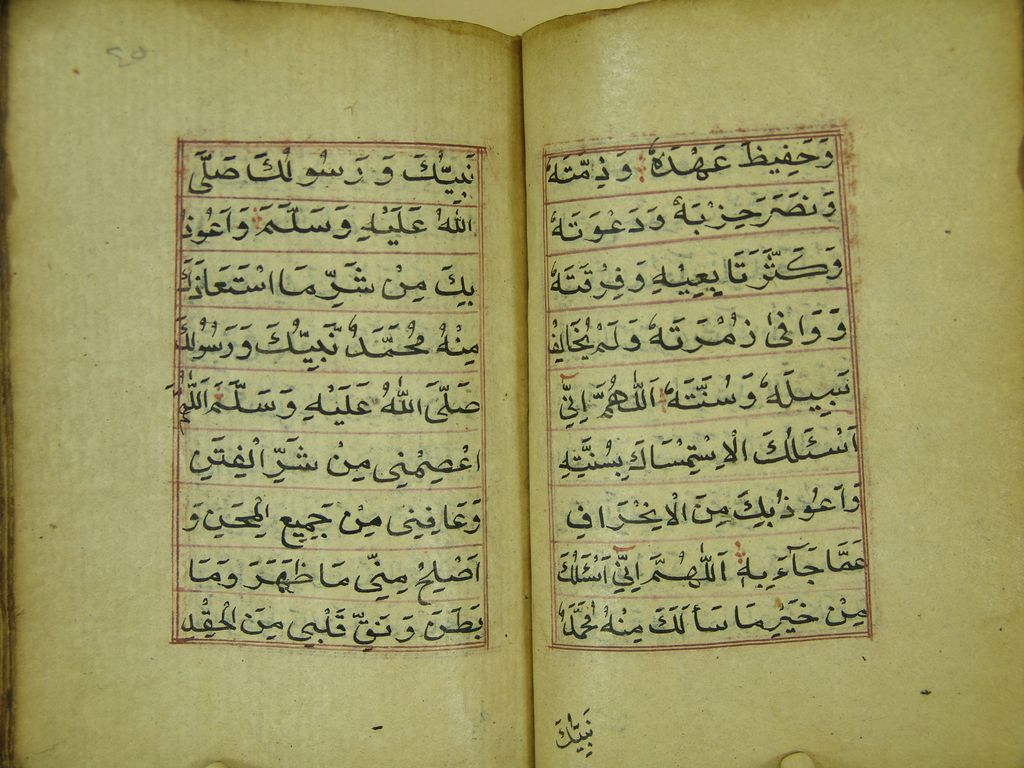 وَحَفِيظَ عَهْدَهُ وَذِمَّتَهُ
وَنَصَرَ حِزْبَهُ وَدَعْوَتَهُ
وَكَثَّرَ تَابِعِيْهِ وَفِرْقَتَهُ
وَوَافىٰ زُمْرَتَهُ وَلَمْ يُخَالِفْ
سَبِيلَهُ وَسُنَّتَهُ اَللّٰهُمَّ اِنِّي
اَسْئَلُكَ الْاِسْتِمْسَاكَ بِسُنَّتِهِ
وَاَعُوذُ بِكَ مِنَ الْاِنْحِرَافِ
عَمَّا جَآءَ بِهِ اَللّٰهُمَّ اِنِّي اَسْئَلُكَ
مِنْ خَيْرِ مَا سَأَلَكَ مِنْهُ مُحَمَّدٌ
نَبِيُّكَ
٢٥
نَبِيُّكَ وَرَسُولُكَ صَلَّى
اللّٰهُ عَلَيْهِ وَسَلَّمَ وَاَعُوذُ
بِكَ مِنْ شَرِّ مَا اسْتَعَاذَكَ
مِنْهُ مُحَمَّدٌ نَبِيُّكَ وَرَسُولُكَ
صَلَّى اللّٰهُ عَلَيْهِ وَسَلَّمَ اَللّٰهُمَّ
اعْصِمْنِي مِنْ شَرِّ الْفِتَنِ
وَعَافِنِي مِنْ جَمِيعِ الْمِحَنِ وَ
اَصْلِحْ مِنِّي مَا ظَهَرَ وَمَا
بَطَنَ وَنَقِّ قَلْبِي مِنَ الْحِقْدِ